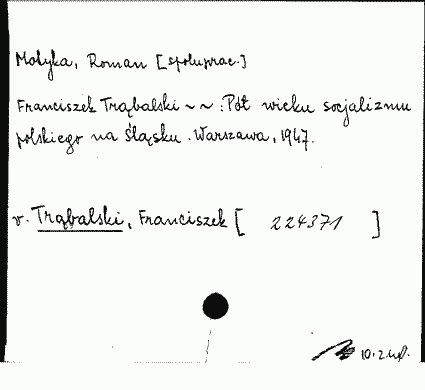 Motyka, Roman [spoluprac.]
Franciszek Trąbalski ~ ~ : Pół wieku socjalizmu
polskiego na Śląsku. Warszawa, 1947.
v. Trąbalski, Franciszek [ 224371 ]
10.2.